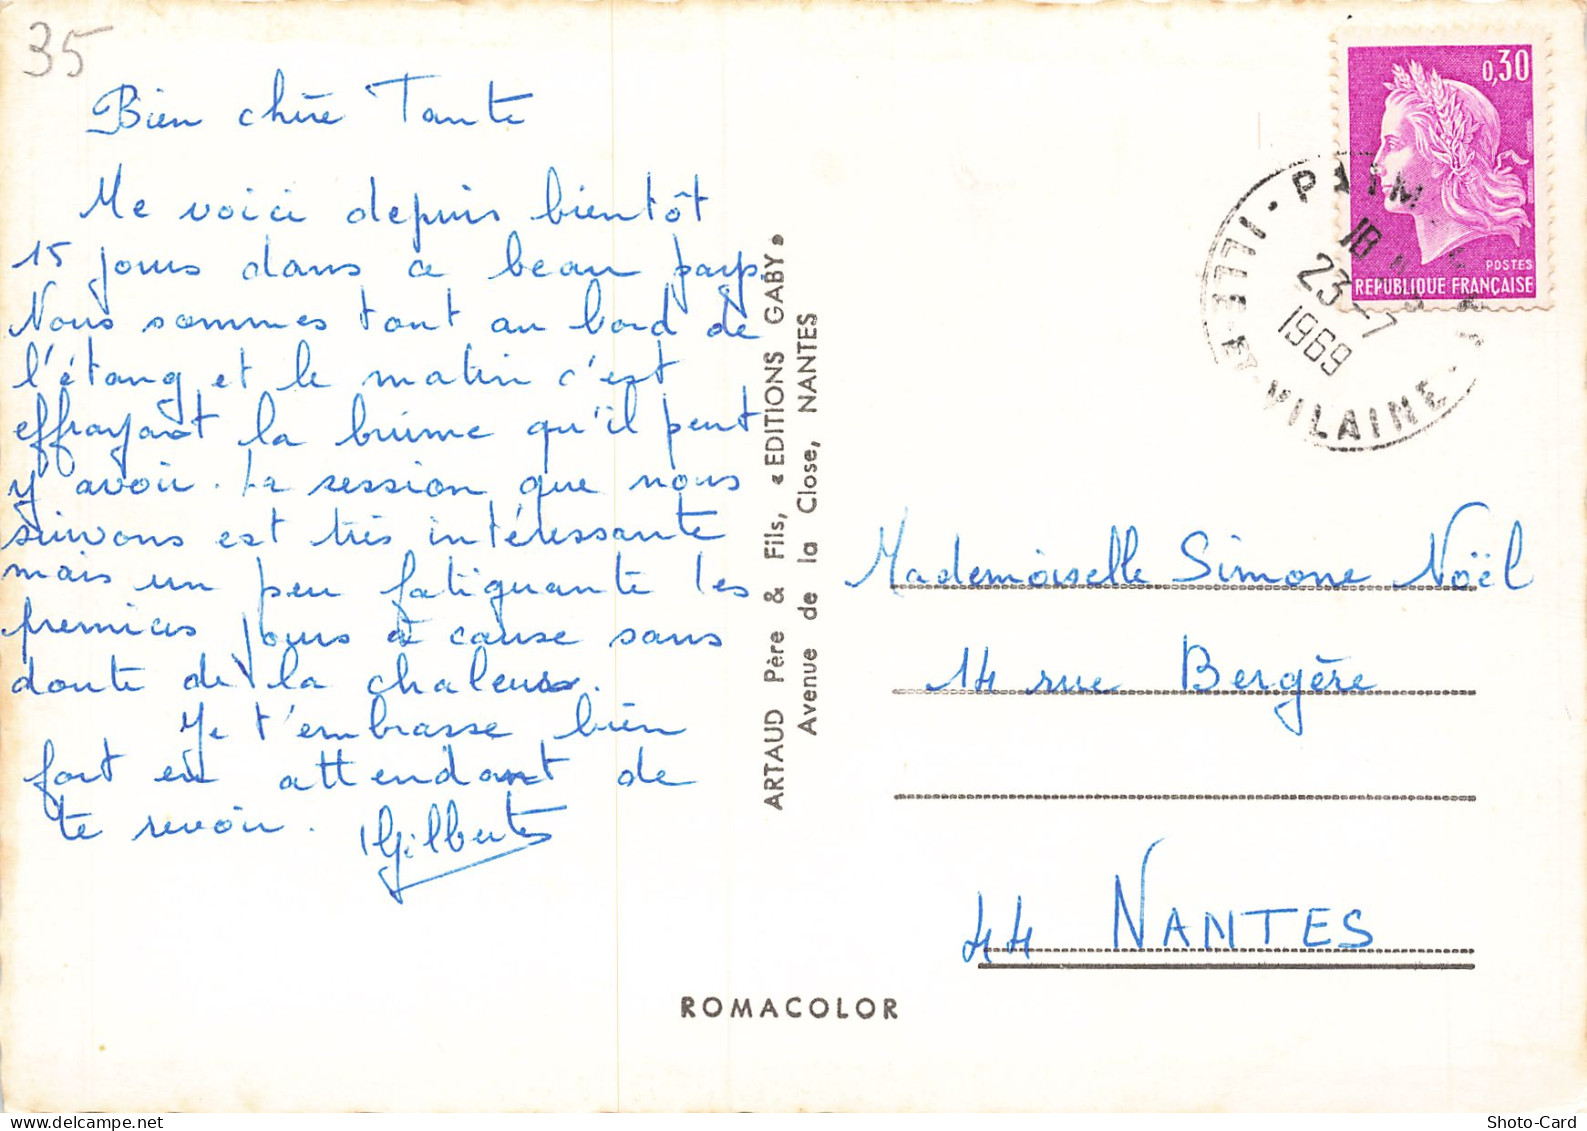 35
Bien chère Tante
Me voici depuis bientôt
15 jours dans ce beau pays
Nous sommes tout au bord de
l'étang et le matin c'est
effrayant la brume qu'il peut
y avoir. La session que nous
suivons est très intéressante
mais un peu fatiguante les
premiers jours à cause sans
doute de la chaleur.
Je t'embrasse bien
fort en attendant de
te revoir. Gilberte
ARTAUD Père & Fils, « EDITIONS GABY »
Avenue de la Close, NANTES
ROMACOLOR
0,30
POSTES
REPUBLIQUE FRANÇAISE
ILLE-ET-VILAINE
18
23-7
1969
Mademoiselle Simone Noël
14 rue Bergère
44 NANTES
Shoto-Card